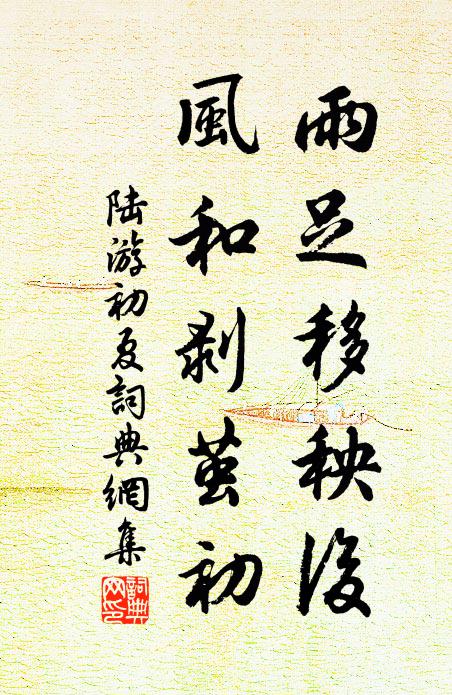 雨足移秧後
風和剥茧初
陆游初夏詞典網集
詞典网印